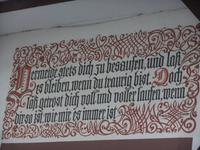 Vermeide stets dich zu besaufen, und laß
es bleiben, wenn du traurig bist. Doch
laß getrost dich voll und voller laufen, wenn
dir so ist, wie mir es immer ist